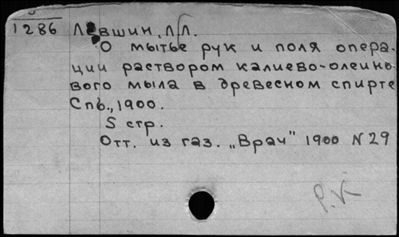 1286 Левшин, Л.Л.
О мытье рук и поля опера-
ции раствором калиево-олеино-
вого мыла в древесном спирте
Спб., 1900.
5 стр.
Отт. из газ. „Врач" 1900 N 29